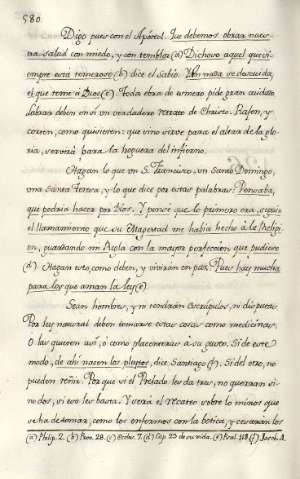 580.
Digo pues con el Apóstol. Que debemos obrar nues-
tra salud con miedo, y con temblor (a) Dichoso aquel que si-
empre está temeroso (b) dice el Sabio. Y en nada se descuida,
el que teme à Dios (c) Toda obra de esmero pide gran cuidado
labrar deben en sí un verdadero retrato de Christo. Pasen, y
corten, como quisieren: que sino sirve para el altar de la glo-
ria, servirá para la hoguera del infierno.
Hagan lo que un S. Francisco, un Santo Domingo,
una Santa Teresa, y lo que dice por estas palabras: Pensaba,
que podria hacer por Dios. Y pensé que lo primero era, seguir
el llamamiento que su Magestad me había hecho à la Religi-
on, guardando mi Regla con la mayor perfeccion que pudiere
(d) Hagan esto, como deben, y vivirán en paz. Pues hay mucha
para los que aman la ley (e)
Sean hombres, y ni tendrán escrúpulos, ni disputas
Por ley natural deben tomarse estas cosas como medicinas.
O las quieren así, ó como placenteras à su gusto. Si de este
modo, de ahí nacen los pleytos, dice Santiago (f). Si del otro, no
pueden reñir. Por que si el Prelado les da tres, no querrán si-
no dos, si vee les basta. Y será el recatéo sobre lo minos que
se ha de tomar, como los enfermos con la botica, y cesarán los
(a) Philip. 2. (b) Prov. 28. (c) Ecles. 7. (d) Cap. 23 de su vida. (e) Psal. 118. (f) Jacob. 4.